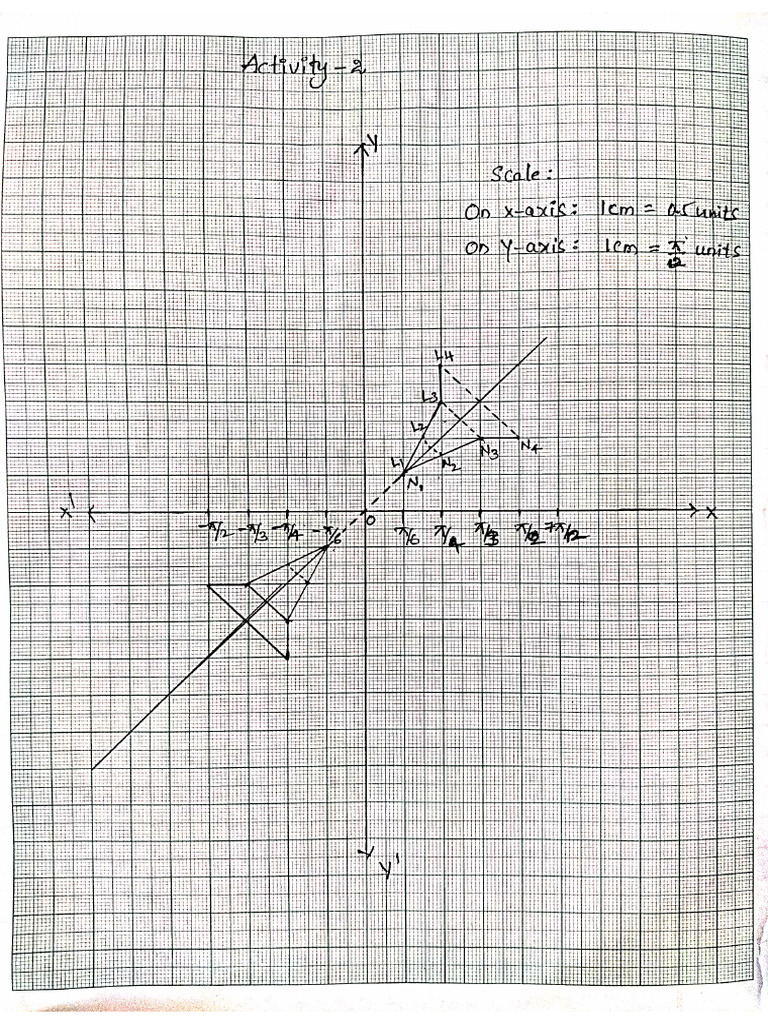 Activity-2
Y
Scale:
On x-axis: 1cm = 0.5 units
On Y-axis: 1cm = π/12 units
L4
L3
L2
N4
N3
L1
N2
N1
X'
X
O
-π/2 -π/3 -π/4 -π/6 π/6 π/4 π/3 7π/12
Y'